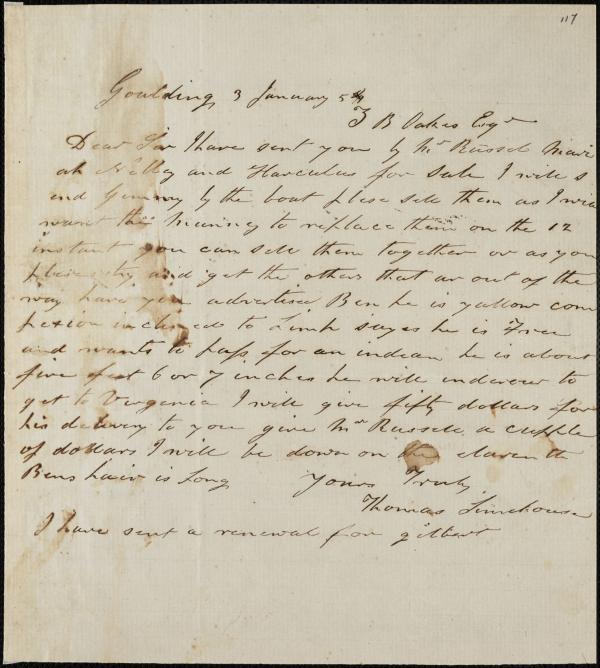 117
Goulding 3 January 5th
Z B Oakes Esqr
Dear Sir I have sent you by Mr Russel Mari
ah Nelly and Harculas for sale I will s
end Jimmy by the boat plese sele them as I will
want the munny to replace them on the 12
instant you can sele them together or as you
plese try and get the others that ar out of the
way have you advertise Ben he is yallow com
plexion inclined to Limp sayes he is Free
and wants to pass for an indean he is about
five feet 6 or 7 inches he will indevour to
get to Virginia I will give fifty dollars for
his delivery to you give Mr Russele a cupple
of dollars I will be down on the elaventh
Bens hair is Long Yours Truly
Thomas Limehouse
I have sent a renewal for gilbert